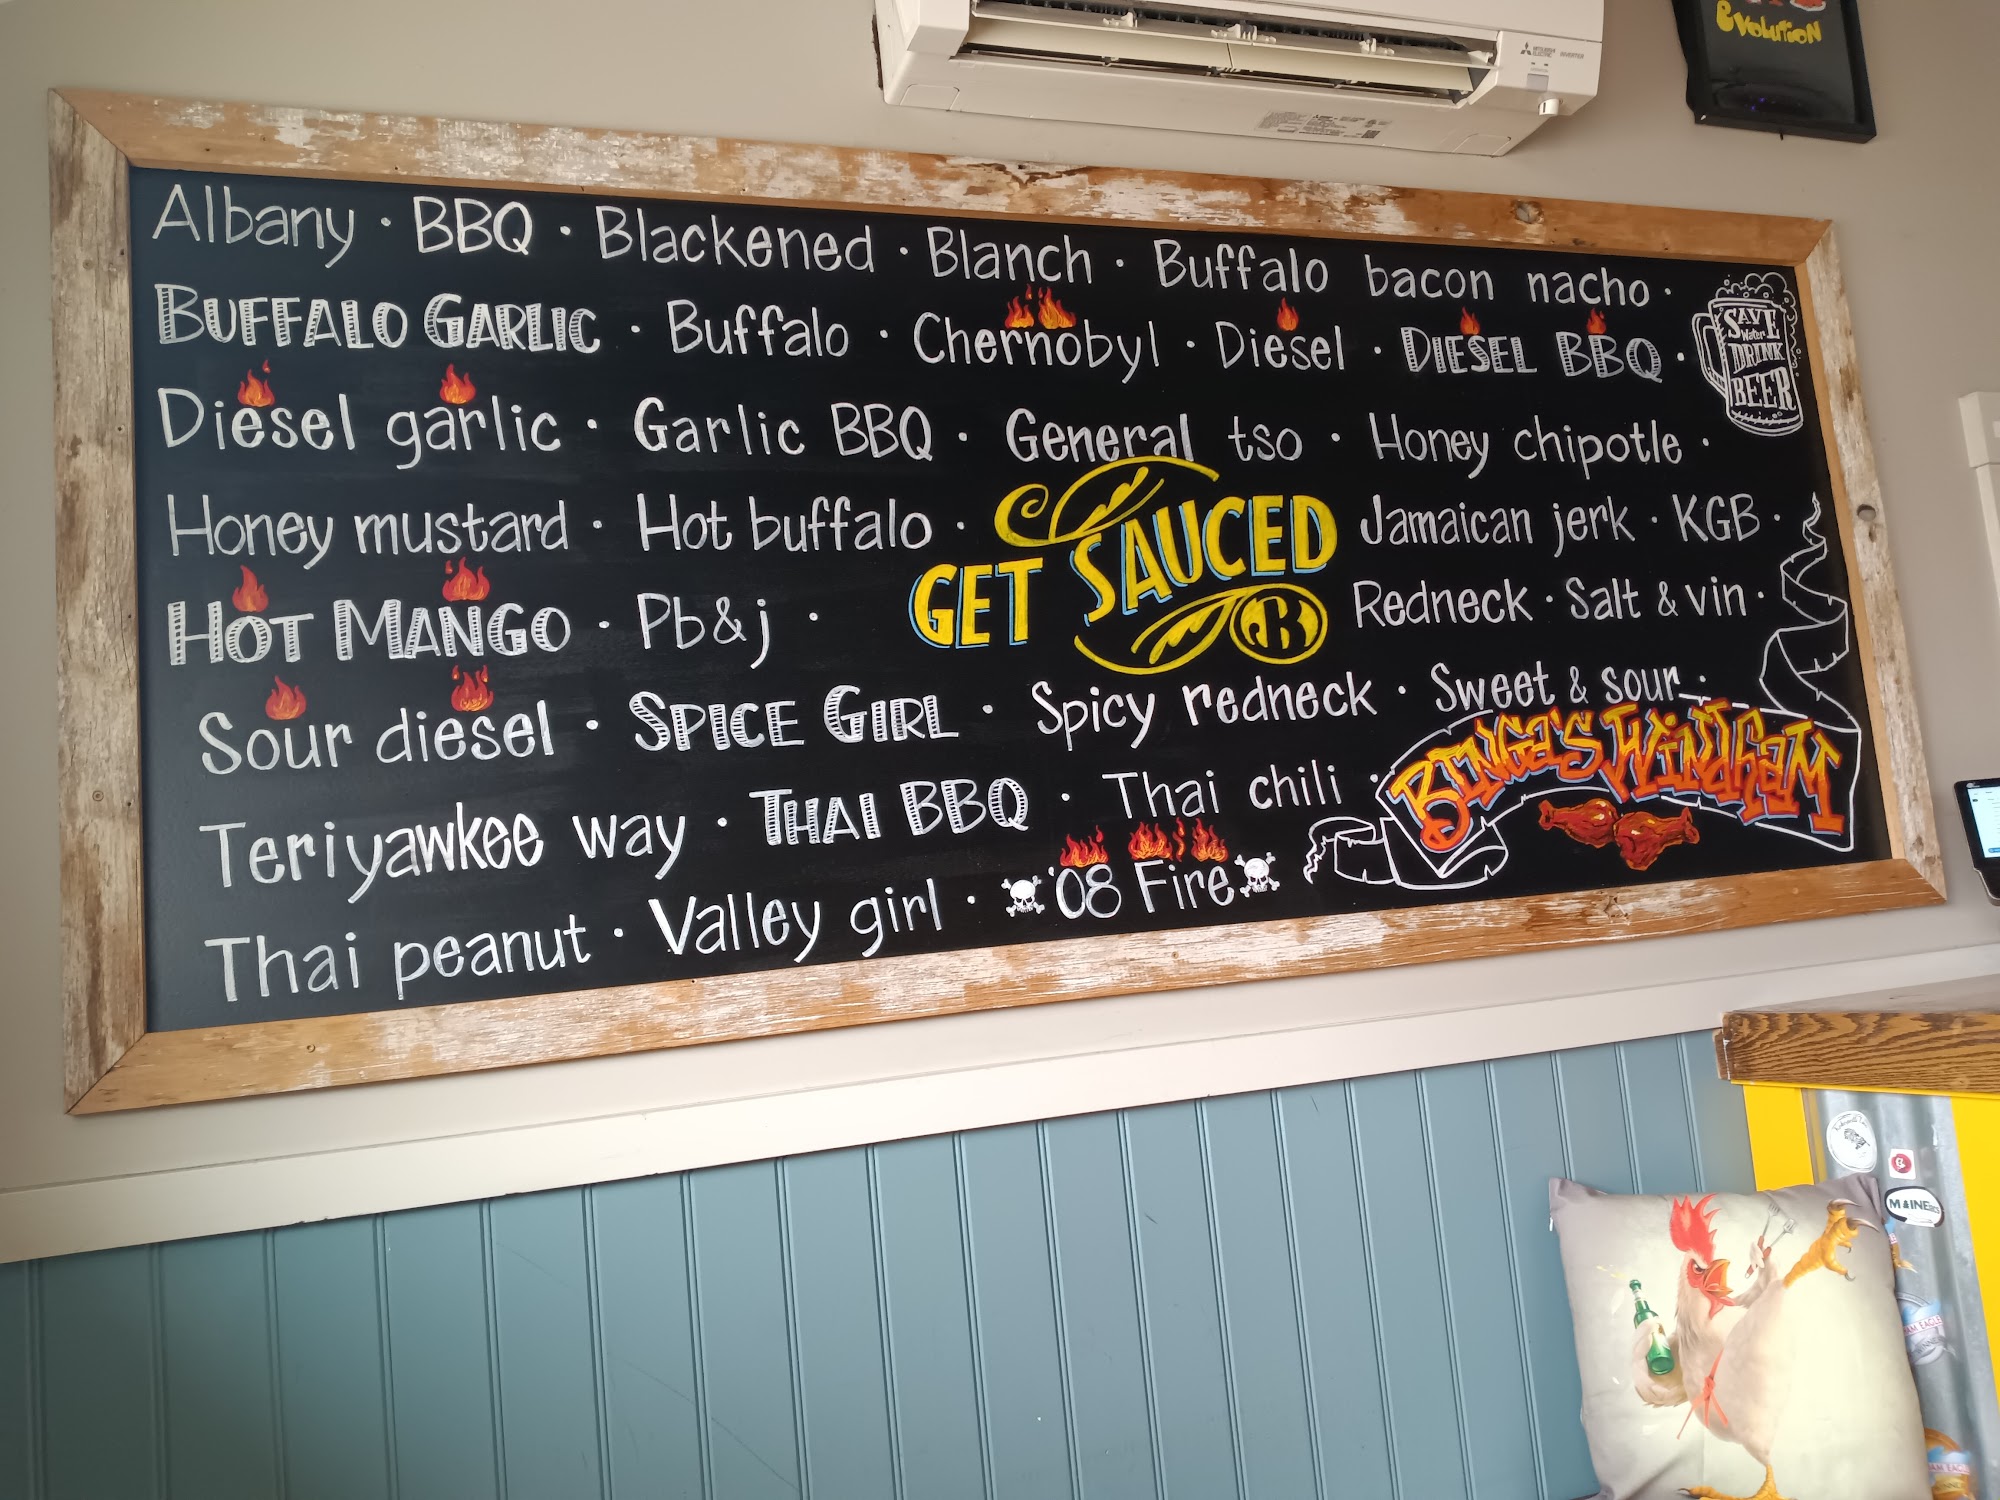 evolution
MITSUBISHI ELECTRIC INVERTER
Albany · BBQ · Blackened · Blanch · Buffalo bacon nacho ·
BUFFALO GARLIC · Buffalo · Chernobyl · Diesel · DIESEL BBQ ·
SAVE
Water
DRINK
BEER
Diesel garlic · Garlic BBQ · General tso · Honey chipotle ·
Honey mustard · Hot buffalo · Jamaican jerk · KGB ·
GET SAUCED
B
HOT MANGO · Pb&j · Redneck · Salt & vin ·
Sour diesel · SPICE GIRL · Spicy redneck · Sweet & sour ·
Teriyawkee way · THAI BBQ · Thai chili ·
BINGA'S WINDHAM
Thai peanut · Valley girl · '08 Fire
MAINE